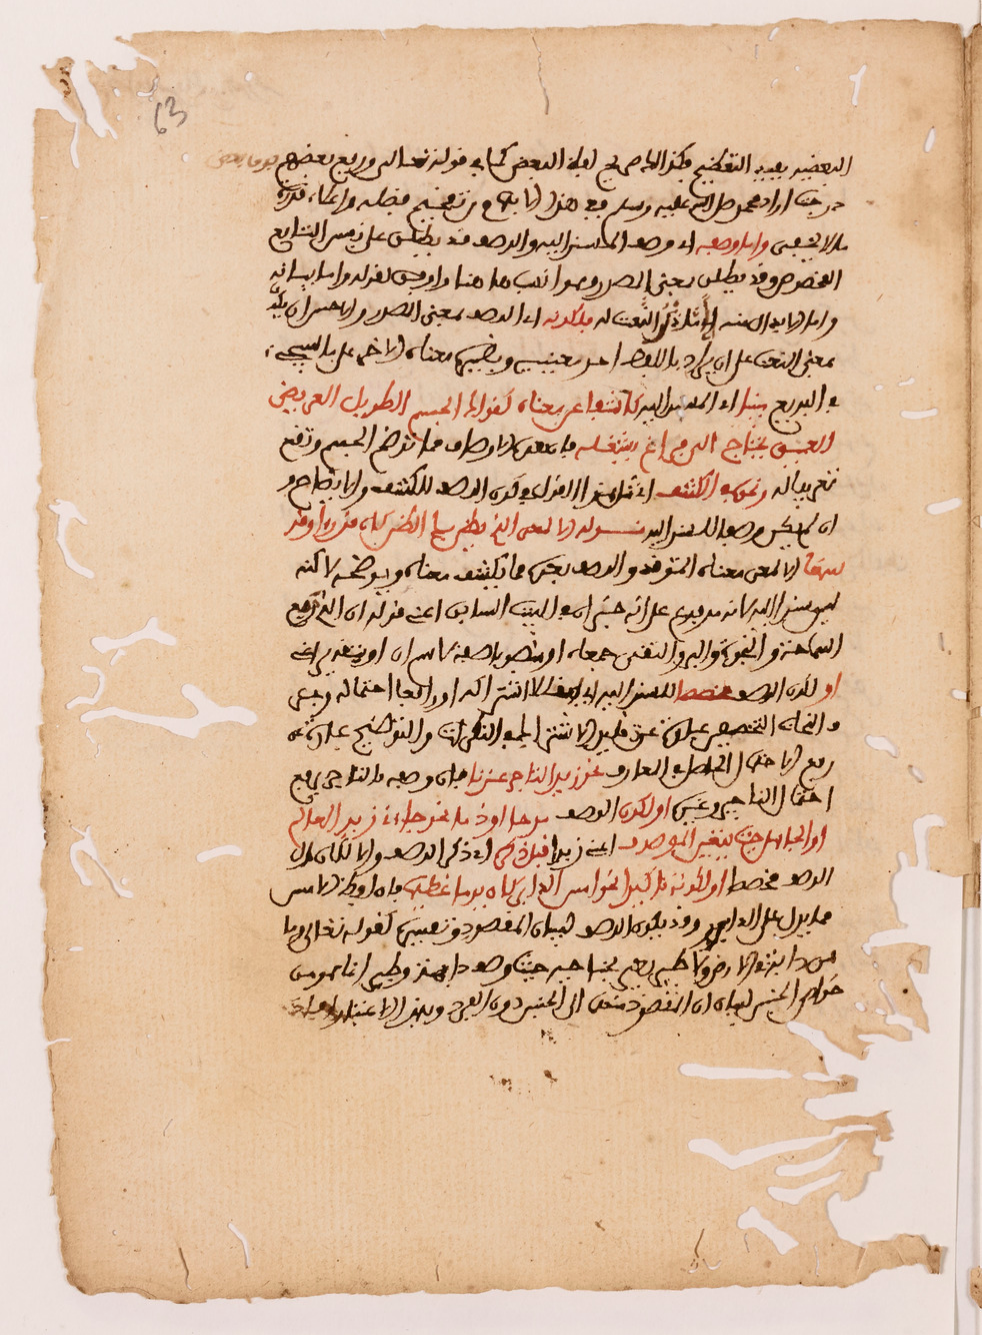 63
البعضية يفيد التعظيم فكذا اذا صرح بلفظ البعض كما في قوله تعالى ورفع بعضهم فوق بعض
درجات اراد محمد صلى الله عليه وسلم ففي هذا الابهام من تفخيم فضله واعلاء قدره
ما لا يخفى واما وصفه اي وصف المسند اليه والوصف قد يطلق على نفس التابع
المخصوص وقد يطلق بمعنى المصدر وهو انسب هاهنا واوفق لقوله واما بيانه
واما الابدال منه اي اما ذكر النعت له فلكونه اي الوصف بمعنى المصدر والاحسن ان يكون
بمعنى النعت على ان يراد باللفظ احد معنييه وبضميره معناه الاخر على ما سيجيء
في البديع مبينا اي المسند اليه كاشفا عن معناه كقولك الجسم الطويل العريض
العميق يحتاج الى فراغ يشغله فان هذه الاوصاف مما توضح الجسم وتقع
تعريفا له ونحوه في الكشف اي مثل هذا القول في كون الوصف للكشف والايضاح و
ان لم يكن وصفا للمسند اليه قوله الالمعي الذي يظن بك الظن كان قد راى وقد
سمعا الالمعي معناه المتوقد والوصف بعده مما يكشف معناه ويوضحه لاكنه
ليس بمسند اليه لانه مرفوع على انه خبر ان في البيت السابق اعني قوله ان الذي جمع
السماحة و النجدة والبر والتقى جمعا او منصوب صفة لاسم ان او بتقدير اعني
او لكون الوصف مخصصا للمسند اليه اي مقللا اشتراكه او رافعا احتماله وفي عرف
النحاة التخصيص عبارة عن تقليل الاشتراك في النكرات والتوضيح عبارة عن
رفع الاحتمال الحاصل في المعارف نحو زيد التاجر عندنا فان وصفه بالتاجر يرفع
احتمال التاجر وغيره او لكون الوصف مدحا او ذما نحو جاءني زيد العالم
او الجاهل حيث يتعين الموصوف اعني زيدا قبل ذكره اي ذكر الوصف والا لكان
الوصف مخصصا او لكونه تاكيدا نحو امس الدابر كان يوما عظيما فان لفظ الامس
مما يدل على الدبور وقد يكون الوصف لبيان المقصود وتفسيره كقوله تعالى وما
من دابة في الارض ولا طائر يطير بجناحيه حيث وصف دابة وطائر بما هو من
خواص الجنس لبيان ان المقصود منهما الى الجنس دون الفرد وبهذا الاعتبار افاد